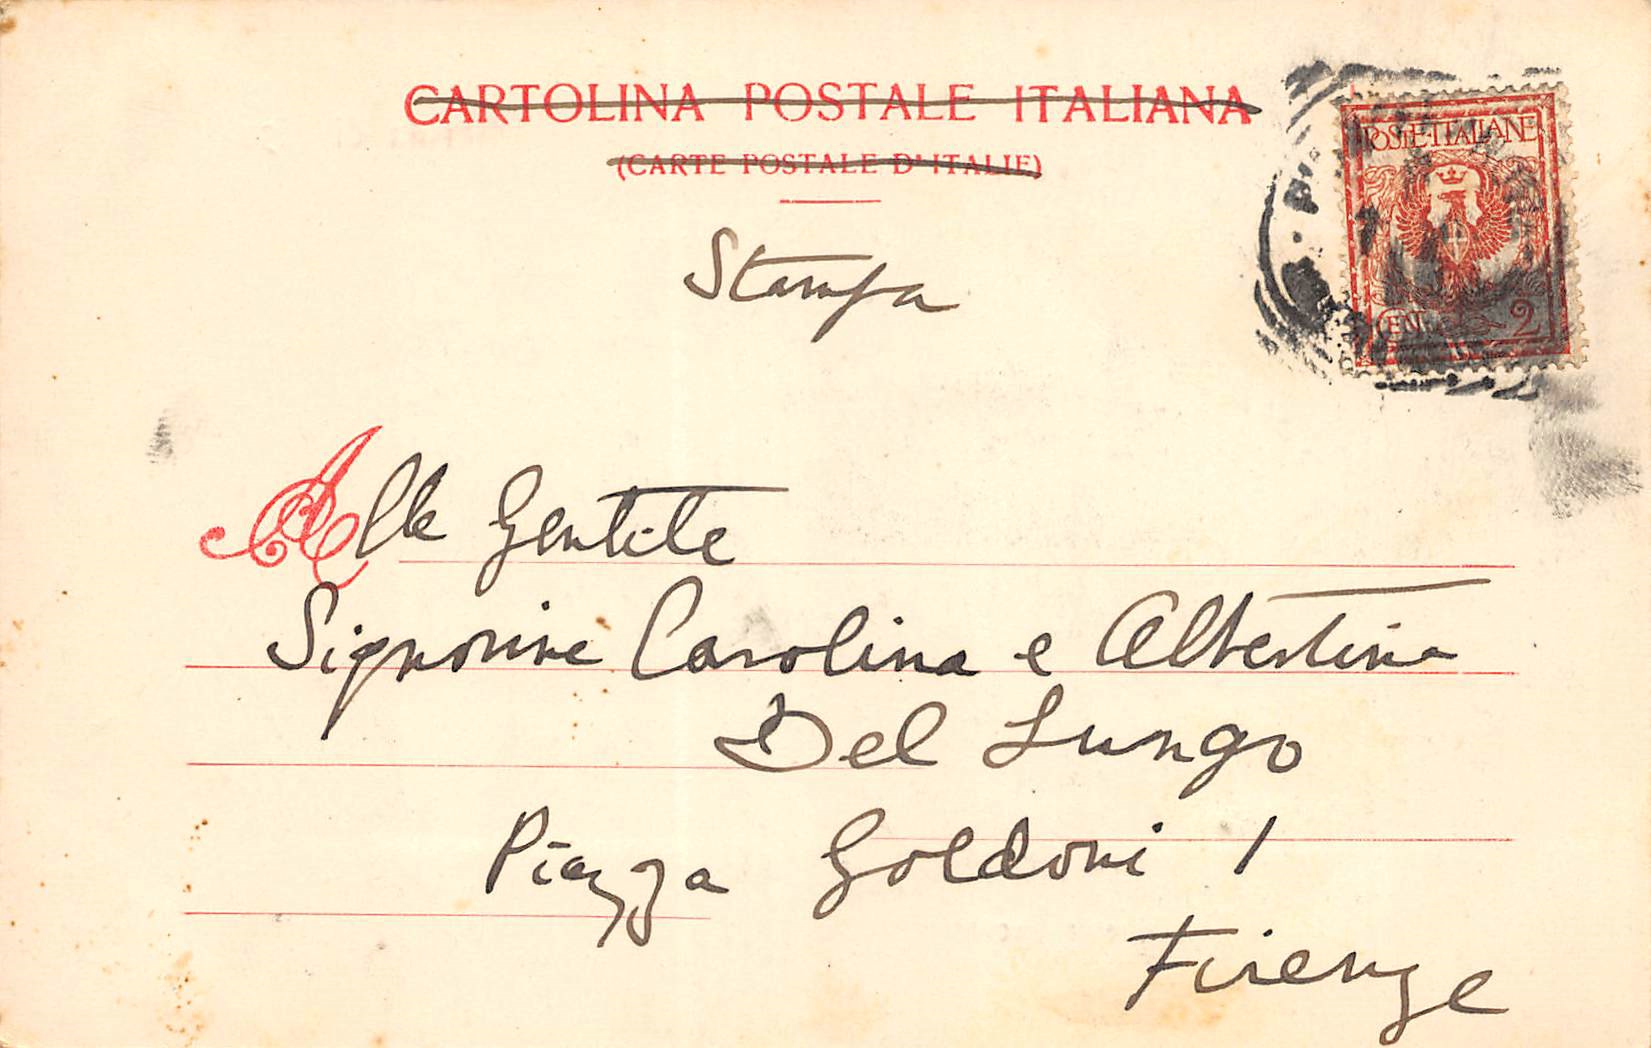 CARTOLINA POSTALE ITALIANA
(CARTE POSTALE D'ITALIE)
POSTE·ITALIANE
CENT. 2
Stampa
Alle Gentile
Signorine Carolina e Albertina
Del Lungo
Piazza Goldoni 1
Firenze